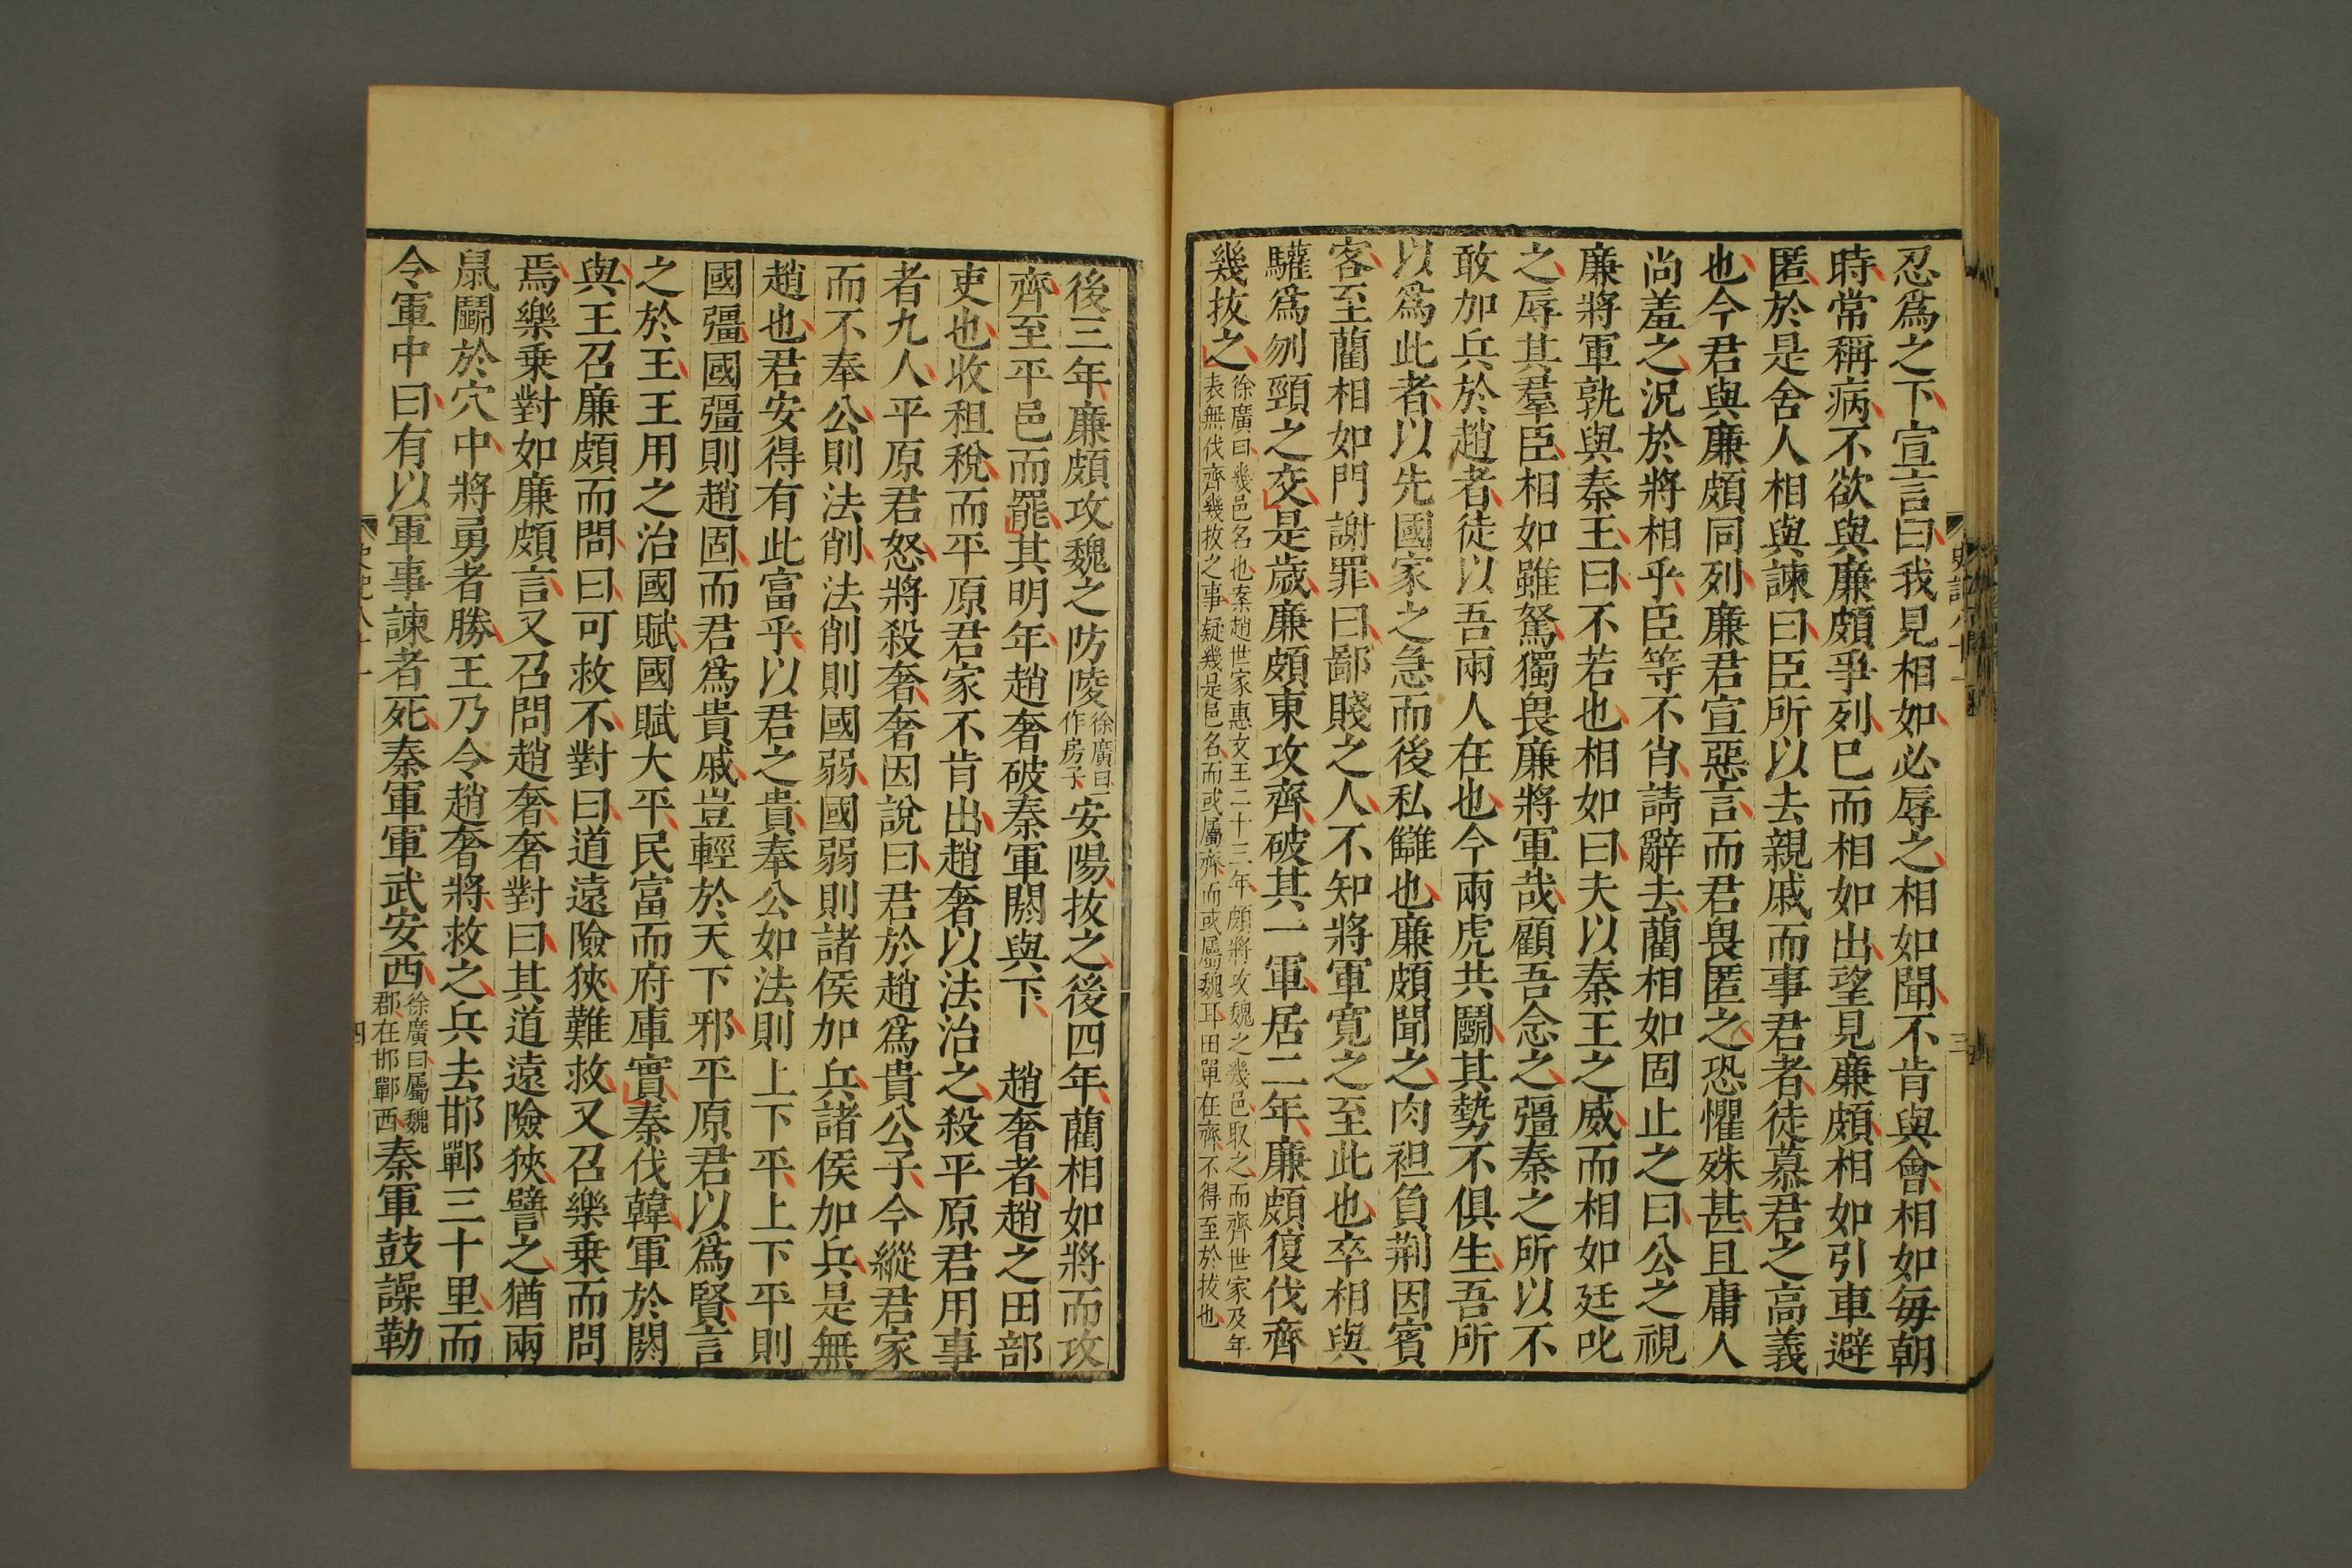 忍爲之下宣言曰我見相如必辱之相如聞不肯與會相如每朝
時常稱病不欲與廉頗爭列巳而相如出望見廉頗相如引車避
匿於是舍人相與諫曰臣所以去親戚而事君者徒慕君之高義
也今君與廉頗同列廉君宣惡言而君畏匿之恐懼殊甚且庸人
尚羞之況於將相乎臣等不肖請辭去藺相如固止之曰公之視
廉將軍孰與秦王曰不若也相如曰夫以秦王之威而相如廷叱
之辱其羣臣相如雖駑獨畏廉將軍哉顧吾念之彊秦之所以不
敢加兵於趙者徒以吾兩人在也今兩虎共鬬其勢不俱生吾所
以爲此者以先國家之急而後私讎也廉頗聞之肉袒負荆因賓
客至藺相如門謝罪曰鄙賤之人不知將軍寛之至此也卒相與
驩爲刎頸之交是歲廉頗東攻齊破其一軍居二年廉頗復伐齊
幾拔之
徐廣曰幾邑名也案趙世家惠文王二十三年頗將攻魏之幾邑取之而齊世家及年
表無伐齊幾拔之事疑幾是邑名而或屬齊而或屬魏耳田單在齊不得至於拔也
史記八十一
三
後三年廉頗攻魏之防陵
徐廣曰一
作房子
安陽拔之後四年藺相如將而攻
齊至平邑而罷其明年趙奢破秦軍閼與下 趙奢者趙之田部
吏也收租稅而平原君家不肯出趙奢以法治之殺平原君用事
者九人平原君怒將殺奢奢因說曰君於趙爲貴公子今縱君家
而不奉公則法削法削則國弱國弱則諸侯加兵諸侯加兵是無
趙也君安得有此富乎以君之貴奉公如法則上下平上下平則
國彊國彊則趙固而君爲貴戚豈輕於天下邪平原君以爲賢言
之於王王用之治國賦國賦大平民富而府庫實秦伐韓軍於閼
與王召廉頗而問曰可救不對曰道遠險狹難救又召樂乗而問
焉樂乗對如廉頗言又召問趙奢奢對曰其道遠險狹譬之猶兩
鼠鬬於穴中將勇者勝王乃令趙奢將救之兵去邯鄲三十里而
令軍中曰有以軍事諫者死秦軍軍武安西
徐廣曰屬魏
郡在邯鄲西
秦軍鼓譟勒
四